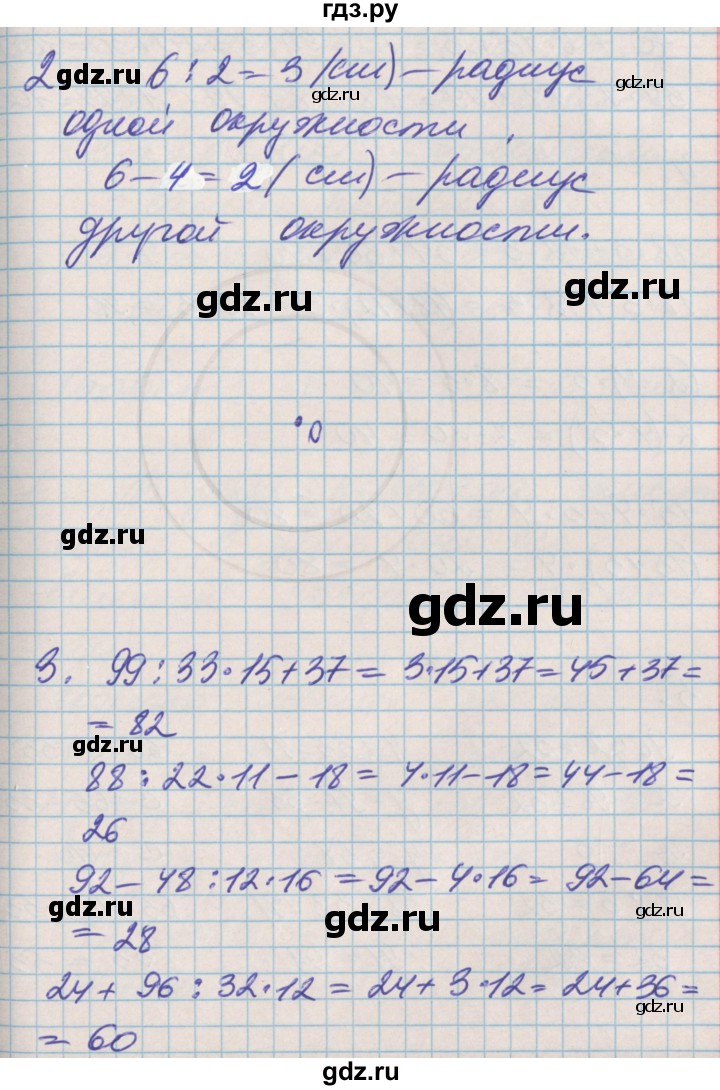 гдз.ру
2 gdz.ru 6 : 2 = 3 (см) – радиус
gdz.ru
gdz.ru
одной окружности,
6 – 4 = 2 (см) – радиус
другой окружности.
gdz.ru
gdz.ru
О
gdz.ru
gdz.ru
3. 99 : 33 · 15 + 37 = 3 · 15 + 37 = 45 + 37 =
= 82
gdz.ru
88 : 22 · 11 – 18 = 4 · 11 – 18 = 44 – 18 =
26
92 – 48 : 12 · 16 = 92 – 4 · 16 = 92 – 64 =
gdz.ru
gdz.ru
gdz.ru
= 28
24 + 96 : 32 · 12 = 24 + 3 · 12 = 24 + 36 =
= 60
gdz.ru
gdz.ru
gdz.ru